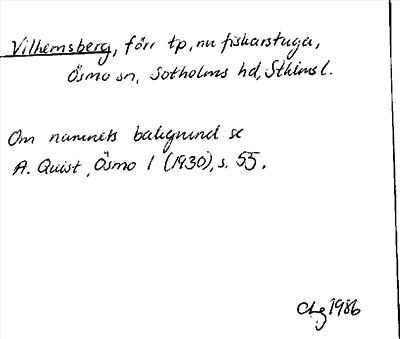 Vilhemsberg, förr tp, nu fiskarstuga,
Ösmo sn, Sotholms hd, Sthlms l.
Om namnets bakgrund se
A. Quist, Ösmo 1 (1930), s. 55.
1986